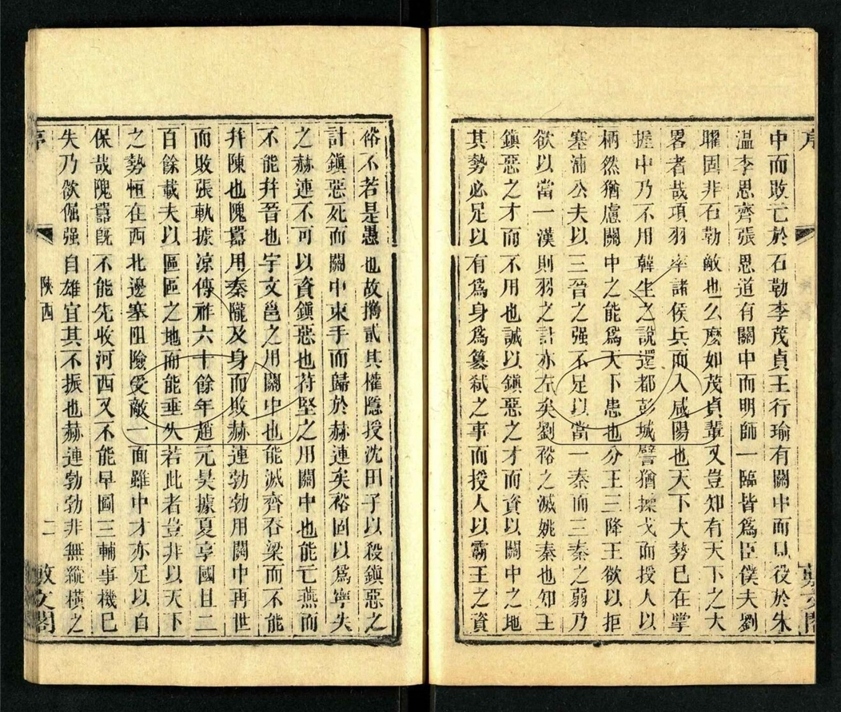 序
中而敗亡於石勒李茂貞王行瑜有關中而見役於朱
溫李思齊張思道有關中而明師一臨皆爲臣僕夫劉
曜固非石勒敵也么麼如茂貞輩又豈知有天下之大
畧者哉項羽率諸侯兵而入咸陽也天下大勢已在掌
握中乃不用韓生之說還都彭城譬猶操戈而授人以
柄然猶慮關中之能爲天下患也分王三降王欲以拒
塞沛公夫以三晉之强不足以當一秦而三秦之弱乃
欲以當一漢則羽之計亦左矣劉裕之滅姚秦也知王
鎮惡之才而不用也誠以鎮惡之才而資以關中之地
其勢必足以有爲身爲篡弑之事而授人以霸王之資
裕不若是愚也故攜貳其權隱授沈田子以殺鎮惡之
計鎮惡死而關中束手而歸於赫連矣裕固以爲寧失
之赫連不可以資鎮惡也苻堅之用關中也能亡燕而
不能幷晉也宇文邕之用關中也能滅齊吞梁而不能
幷陳也隗囂用秦隴及身而敗赫連勃勃用關中再世
而敗張軌據凉傳祚六十餘年趙元昊據夏享國且二
百餘載夫以區區之地而能垂久若此者豈非以天下
之勢恒在西北邊塞阻險受敵一面雖中才亦足以自
保哉隗囂旣不能先收河西又不能早圖三輔事機已
失乃欲倔强自雄宜其不振也赫連勃勃非無縱橫之
序
陝西
二
敷文閣